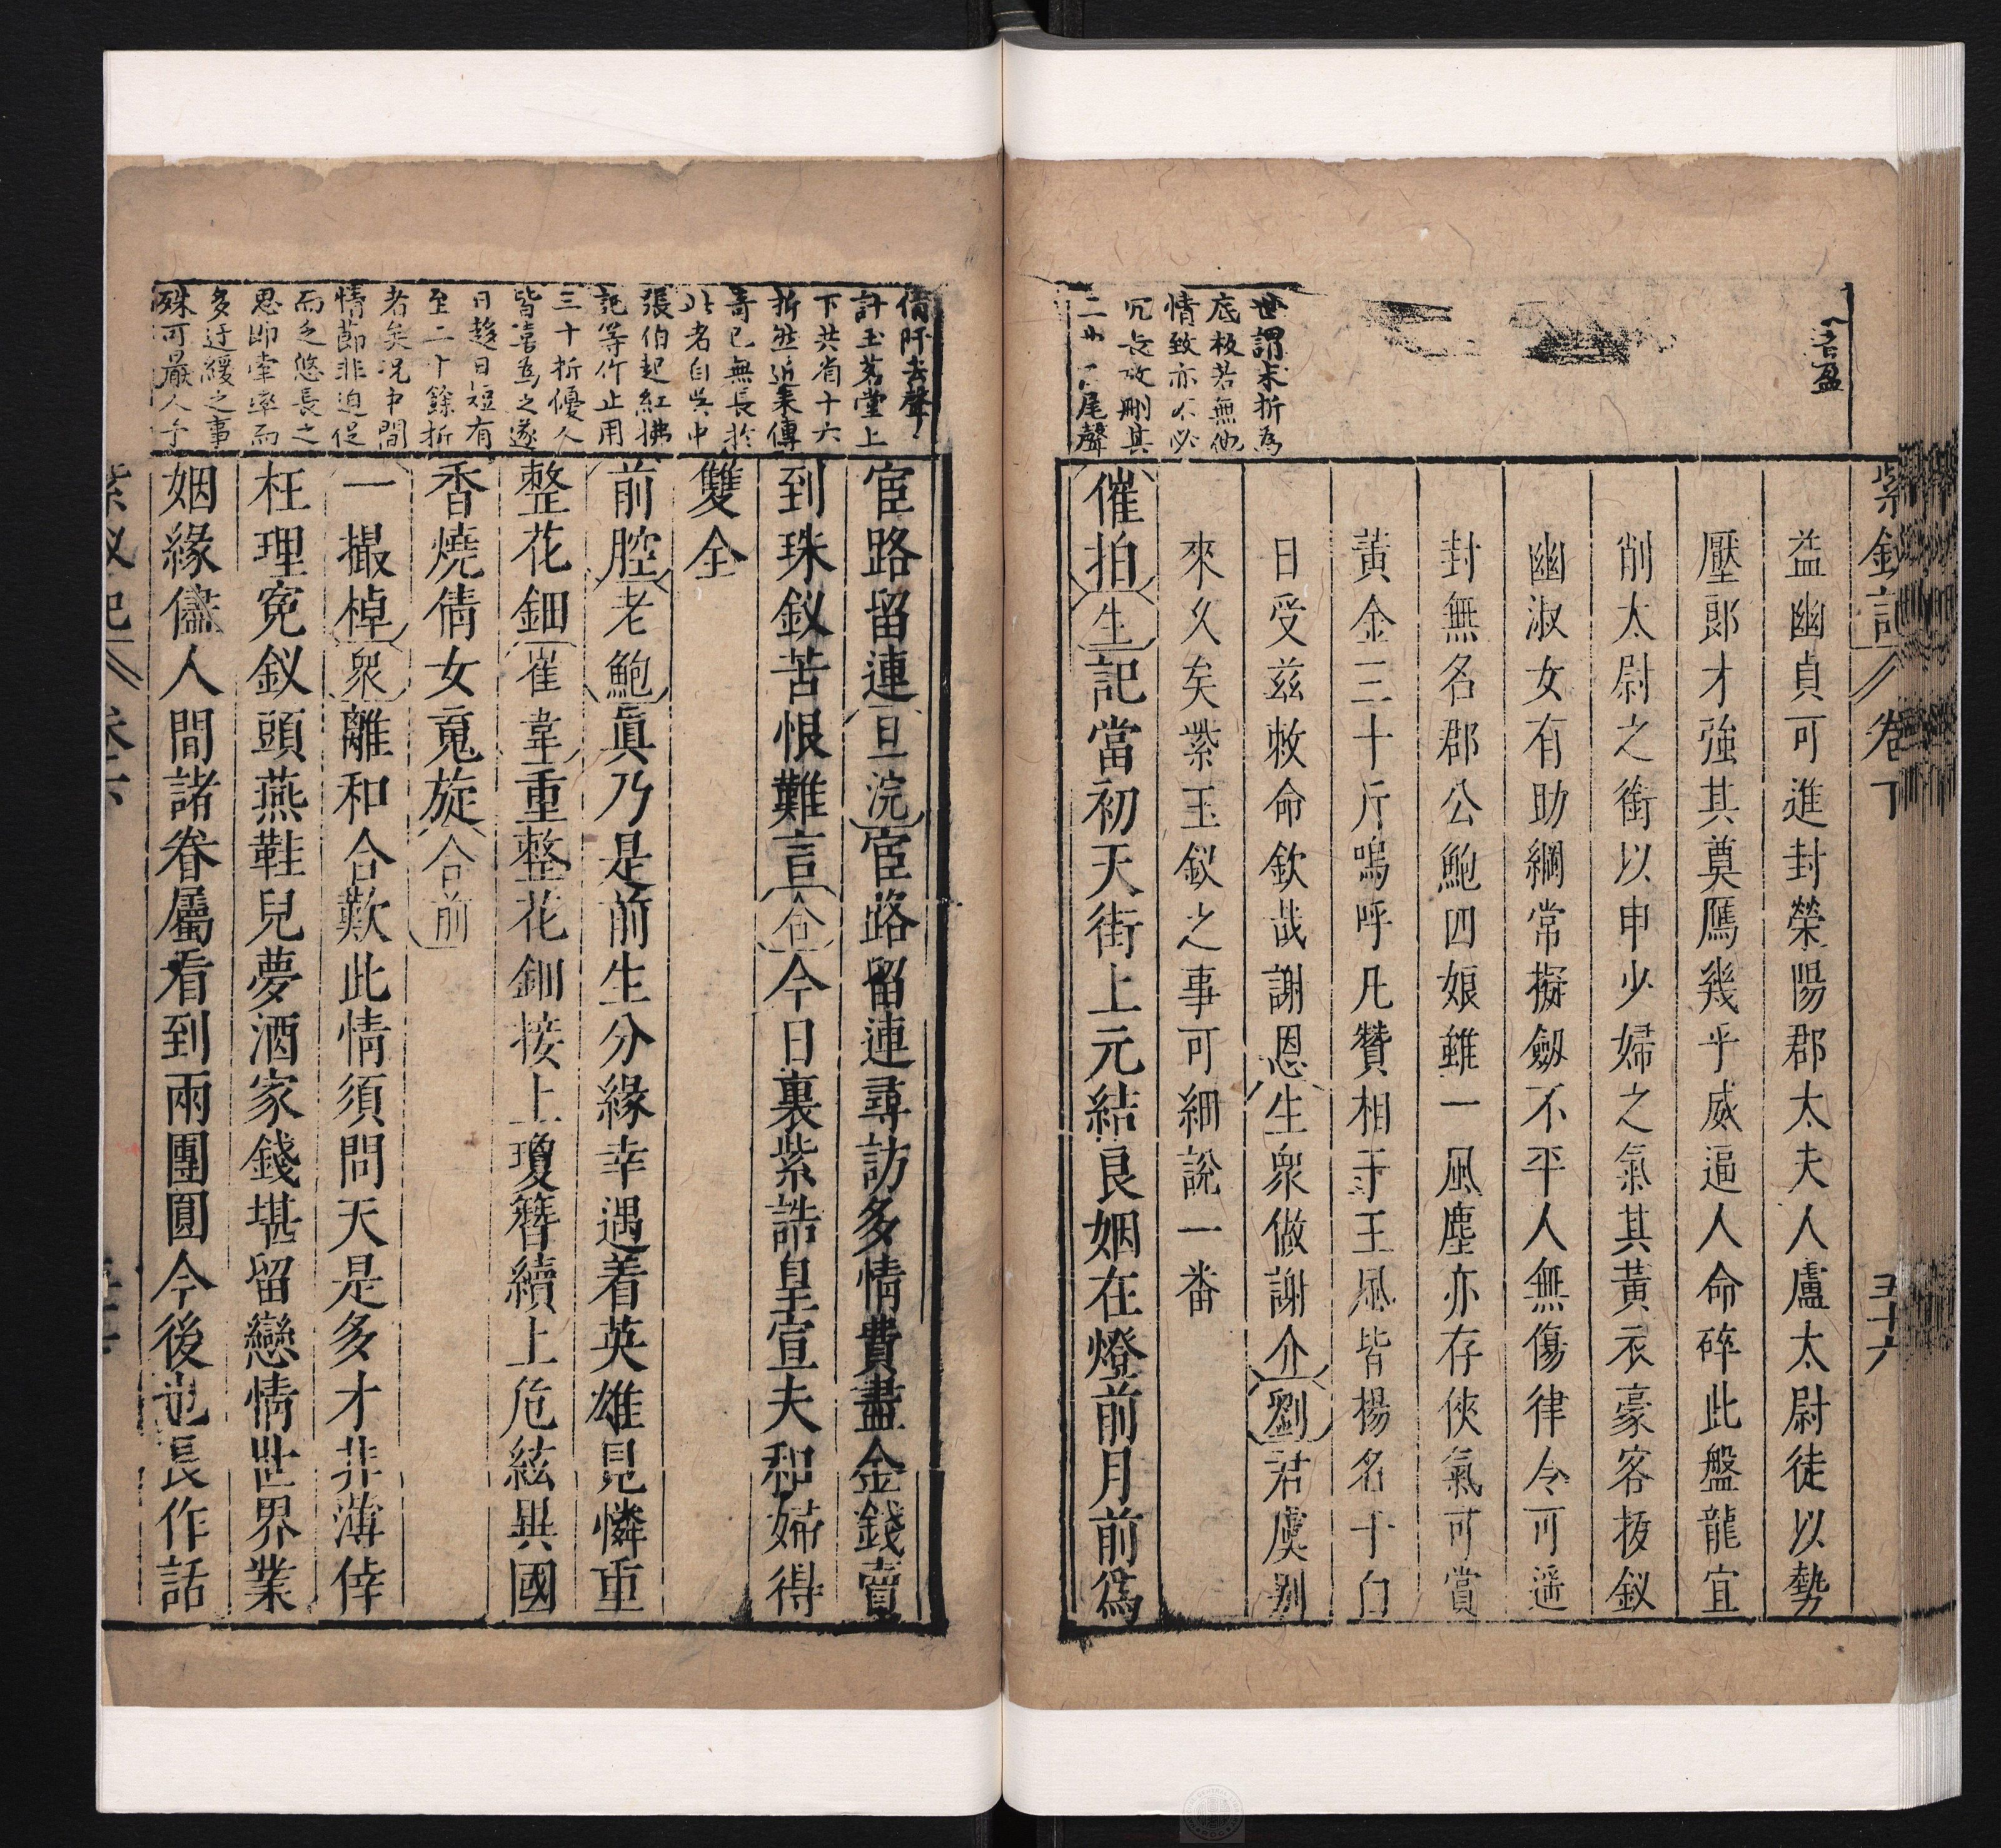 紫釵記 卷下 五十六
益幽貞可進封榮陽郡太夫人盧太尉徒以勢
壓郎才強其奠鴈幾乎威逼人命碎此盤龍宜
削太尉之銜以申少婦之氣其黃衣豪客拔釵
幽淑女有助綱常擬劒不平人無傷律令可遥
封無名郡公鮑四娘雖一風塵亦存俠氣可賞
黃金三十斤嗚呼凡贊相于王風皆揚名于白
日受兹敕命欽哉謝恩生衆做謝介劉君虞别
來久矣紫玉釵之事可細說一番
世謂末折為
底板若無他
情致亦不必
冗長故删其
尾聲
催拍生記當初天街上元結良姻在燈前月前爲
宦路留連旦浣宦路留連尋訪多情費盡金錢賣
到珠釵苦恨難言合今日裏紫誥皇宣夫和婦得
雙全
前腔老鮑眞乃是前生分緣幸遇着英雄見憐重
整花鈿崔韋重整花鈿接上瓊簪續上危絃異國
香燒倩女䰟旋合前
一撮棹衆離和合歎此情須問天是多才非薄倖
枉理寃釵頭燕鞋兒夢酒家錢堪留戀情世界業
姻緣儘人間諸眷屬看到兩團圓今後也長作話
倩阡去聲
計玉茗堂上
下共省十六
折然近來傳
奇已無長於
此者自吳中
張伯起紅拂
記等作止用
三十折優人
皆喜為之遂
日趨日短有
至二十餘折
者矣况中間
情節非迫促
而乏悠長之
思即牽率而
多迂緩之事
殊可厭人予
紫釵記 卷下